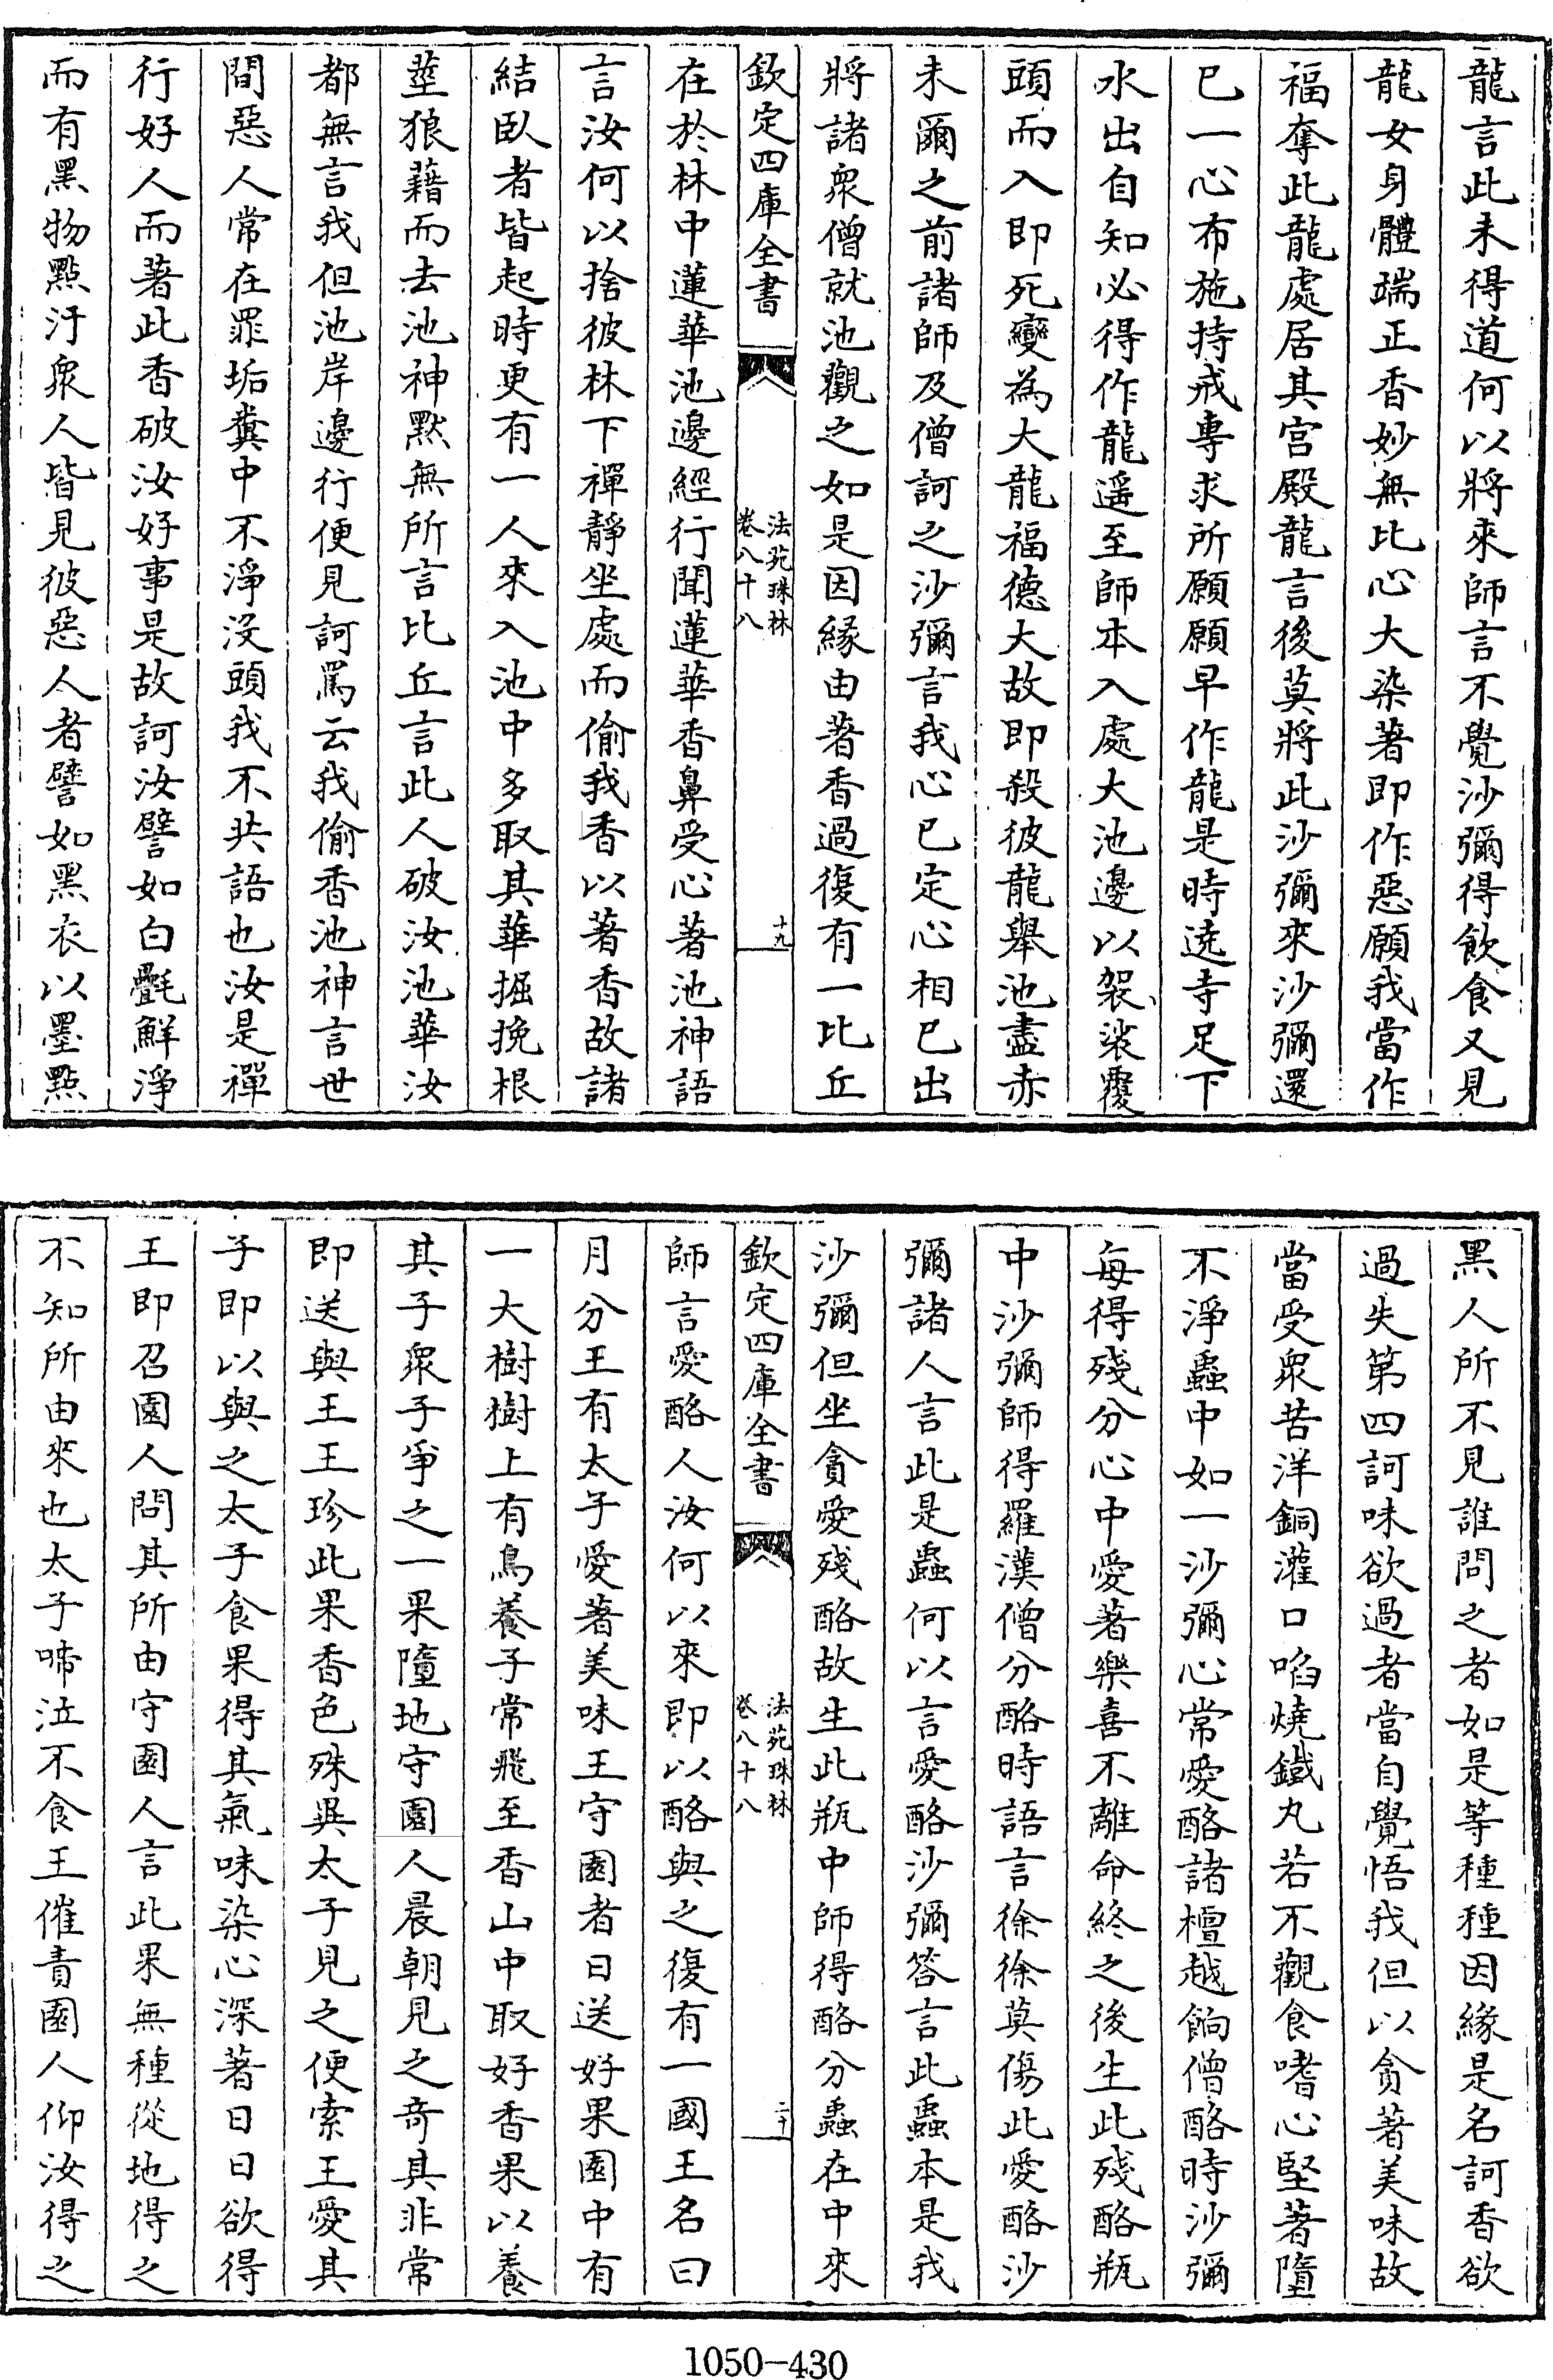 龍言此未得道何以將來師言不覺沙彌得飲食又見
龍女身體端正香妙無比心大染著即作惡願我當作
福奪此龍處居其宫殿龍言後莫將此沙彌來沙彌還
已一心布施持戒專求所願願早作龍是時遶寺足下
水出自知必得作龍遥至師本入處大池邊以袈裟覆
頭而入即死變為大龍福德大故即殺彼龍舉池盡赤
未爾之前諸師及僧訶之沙彌言我心已定心相已出
將諸衆僧就池觀之如是因緣由著香過復有一比丘
欽定四庫全書
法苑珠林
卷八十八
十九
在於林中蓮華池邊經行聞蓮華香鼻受心著池神語
言汝何以捨彼林下禪靜坐處而偷我香以著香故諸
結臥者皆起時更有一人來入池中多取其華掘挽根
莖狼藉而去池神默無所言比丘言此人破汝池華汝
都無言我但池岸邊行便見訶罵云我偷香池神言世
間惡人常在罪垢糞中不淨没頭我不共語也汝是禪
行好人而著此香破汝好事是故訶汝譬如白㲲鮮淨
而有黑物點汙衆人皆見彼惡人者譬如黑衣以墨點
黑人所不見誰問之者如是等種種因緣是名訶香欲
過失第四訶味欲過者當自覺悟我但以貪著美味故
當受衆苦洋銅灌口啗燒鐵丸若不觀食嗜心堅著墮
不淨蟲中如一沙彌心常愛酪諸檀越餉僧酪時沙彌
每得殘分心中愛著樂喜不離命終之後生此殘酪瓶
中沙彌師得羅漢僧分酪時語言徐徐莫傷此愛酪沙
彌諸人言此是蟲何以言愛酪沙彌答言此蟲本是我
沙彌但坐貪愛殘酪故生此瓶中師得酪分蟲在中來
欽定四庫全書
法苑珠林
卷八十八
二十
師言愛酪人汝何以來即以酪與之復有一國王名曰
月分王有太子愛著美味王守園者日送好果園中有
一大樹樹上有鳥養子常飛至香山中取好香果以養
其子衆子爭之一果墮地守園人晨朝見之奇其非常
即送與王王珍此果香色殊異太子見之便索王愛其
子即以與之太子食果得其氣味染心深著日日欲得
王即召園人問其所由守園人言此果無種從地得之
不知所由來也太子啼泣不食王催責園人仰汝得之
1050-430